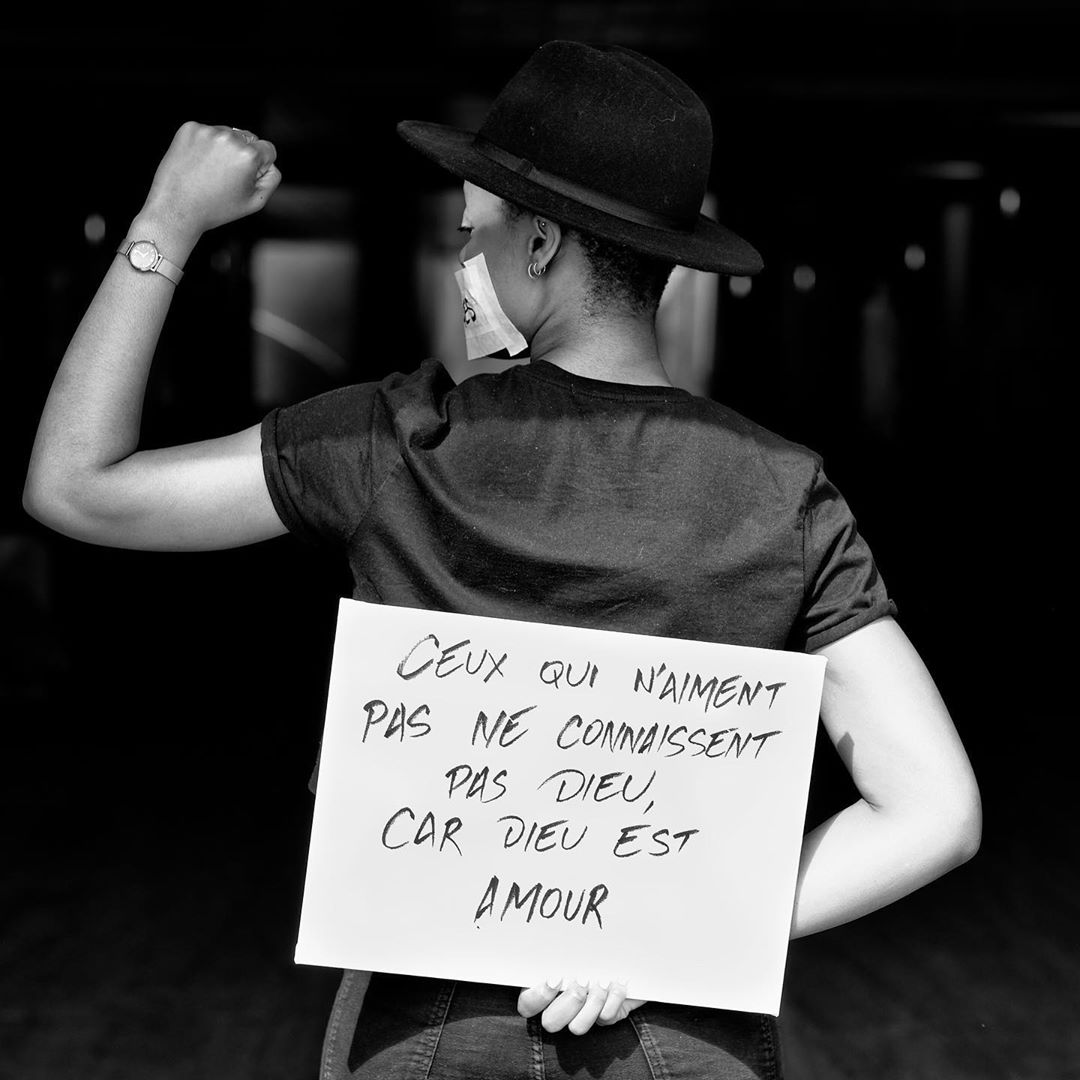 CEUX QUI N'AIMENT
PAS NE CONNAISSENT
PAS DIEU,
CAR DIEU EST
AMOUR